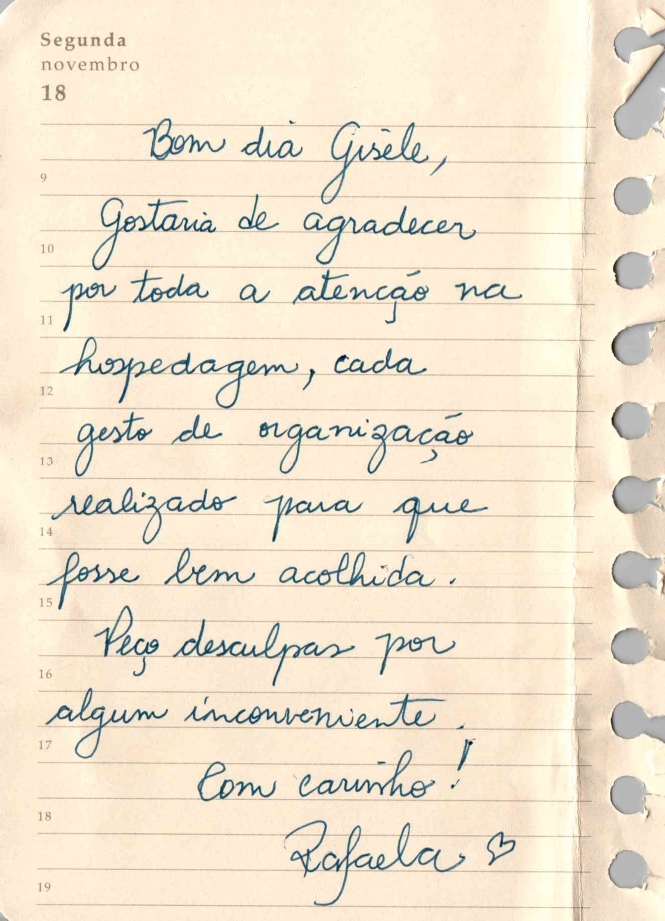 Segunda
novembro
18
Bom dia Gisele,
9
Gostaria de agradecer
10
por toda a atenção na
11
hospedagem, cada
12
gesto de organização
13
realizado para que
14
fosse bem acolhida.
15
Peço desculpas por
16
algum inconveniente.
17
Com carinho!
18
Rafaela ♡
19